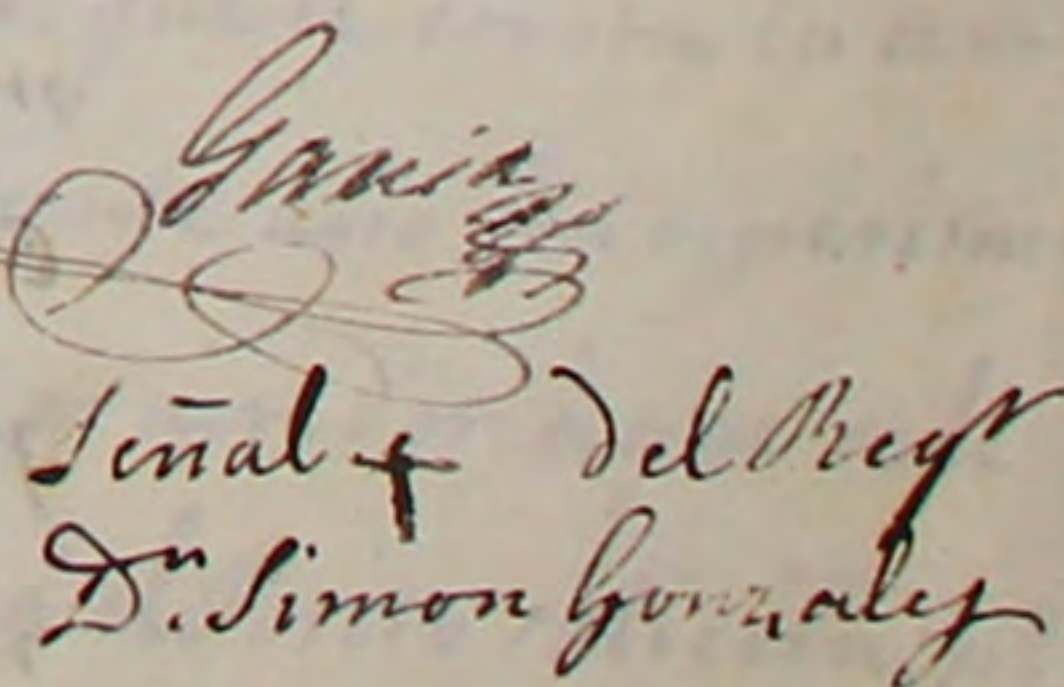 Garcia
Señal + del Regr
Dn. Simon Gonzalez